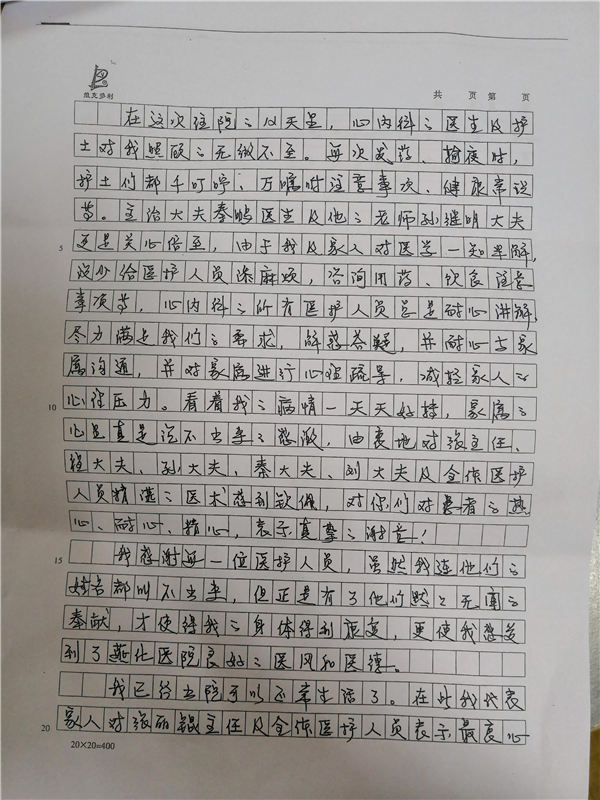 维克多利
共 页 第 页
在这次住院之以天里，心内科之医生及护
士对我照顾之无微不至。每次发药、输液时，
护士们都千叮咛、万嘱咐注意事次、健康常识
等。主治大夫秦鹏医生及他之老师孙继明大夫
更是关心倍至，由于我及家人对医学一知半解，
5
没少给医护人员添麻烦，咨询用药、饮食注意
事项等，心内科之所有医护人员总是耐心讲解，
尽力满足我们之要求，解惑答疑，并耐心与家
属沟通，并对家属进行心理疏导，减轻家人之
心理压力。看着我之病情一天天好转，家属之
10
心里真是说不出来之感激，由衷地对张主任、
程大夫、孙大夫、秦大夫、刘大夫及全体医护
人员精湛之医术感到钦佩，对你们对患者之热
心、耐心、精心，表示真挚之谢意！
我感谢每一位医护人员，虽然我连他们之
15
姓名都叫不出来，但正是有了他们默之无闻之
奉献，才使得我之身体得到恢复，更使我感受
到了燕化医院良好之医风和医德。
我已经出院可以正常生活了。在此我代表
家人对张丽锟主任及全体医护人员表示最衷心
20
20×20=400